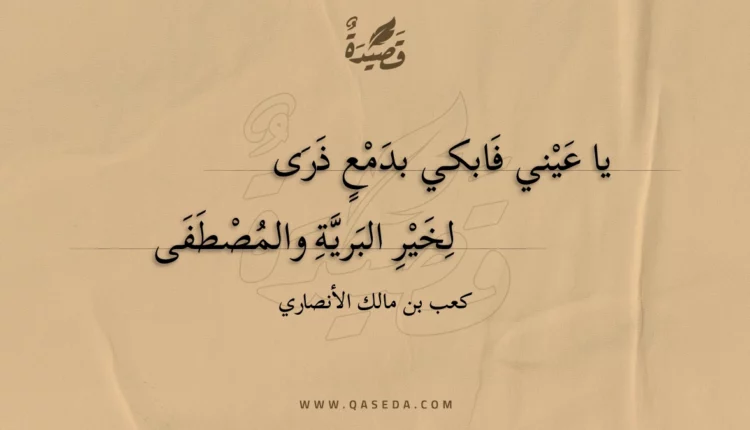 قَصِيْدَةٌ
يا عَيْني فَابكي بدَمْعٍ ذَرَى
لِخَيْرِ البَريَّةِ والمُصْطَفَى
كعب بن مالك الأنصاري
WWW.QASEDA.COM